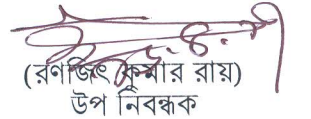 (রণজিৎ কুমার রায়)
উপ নিবন্ধক